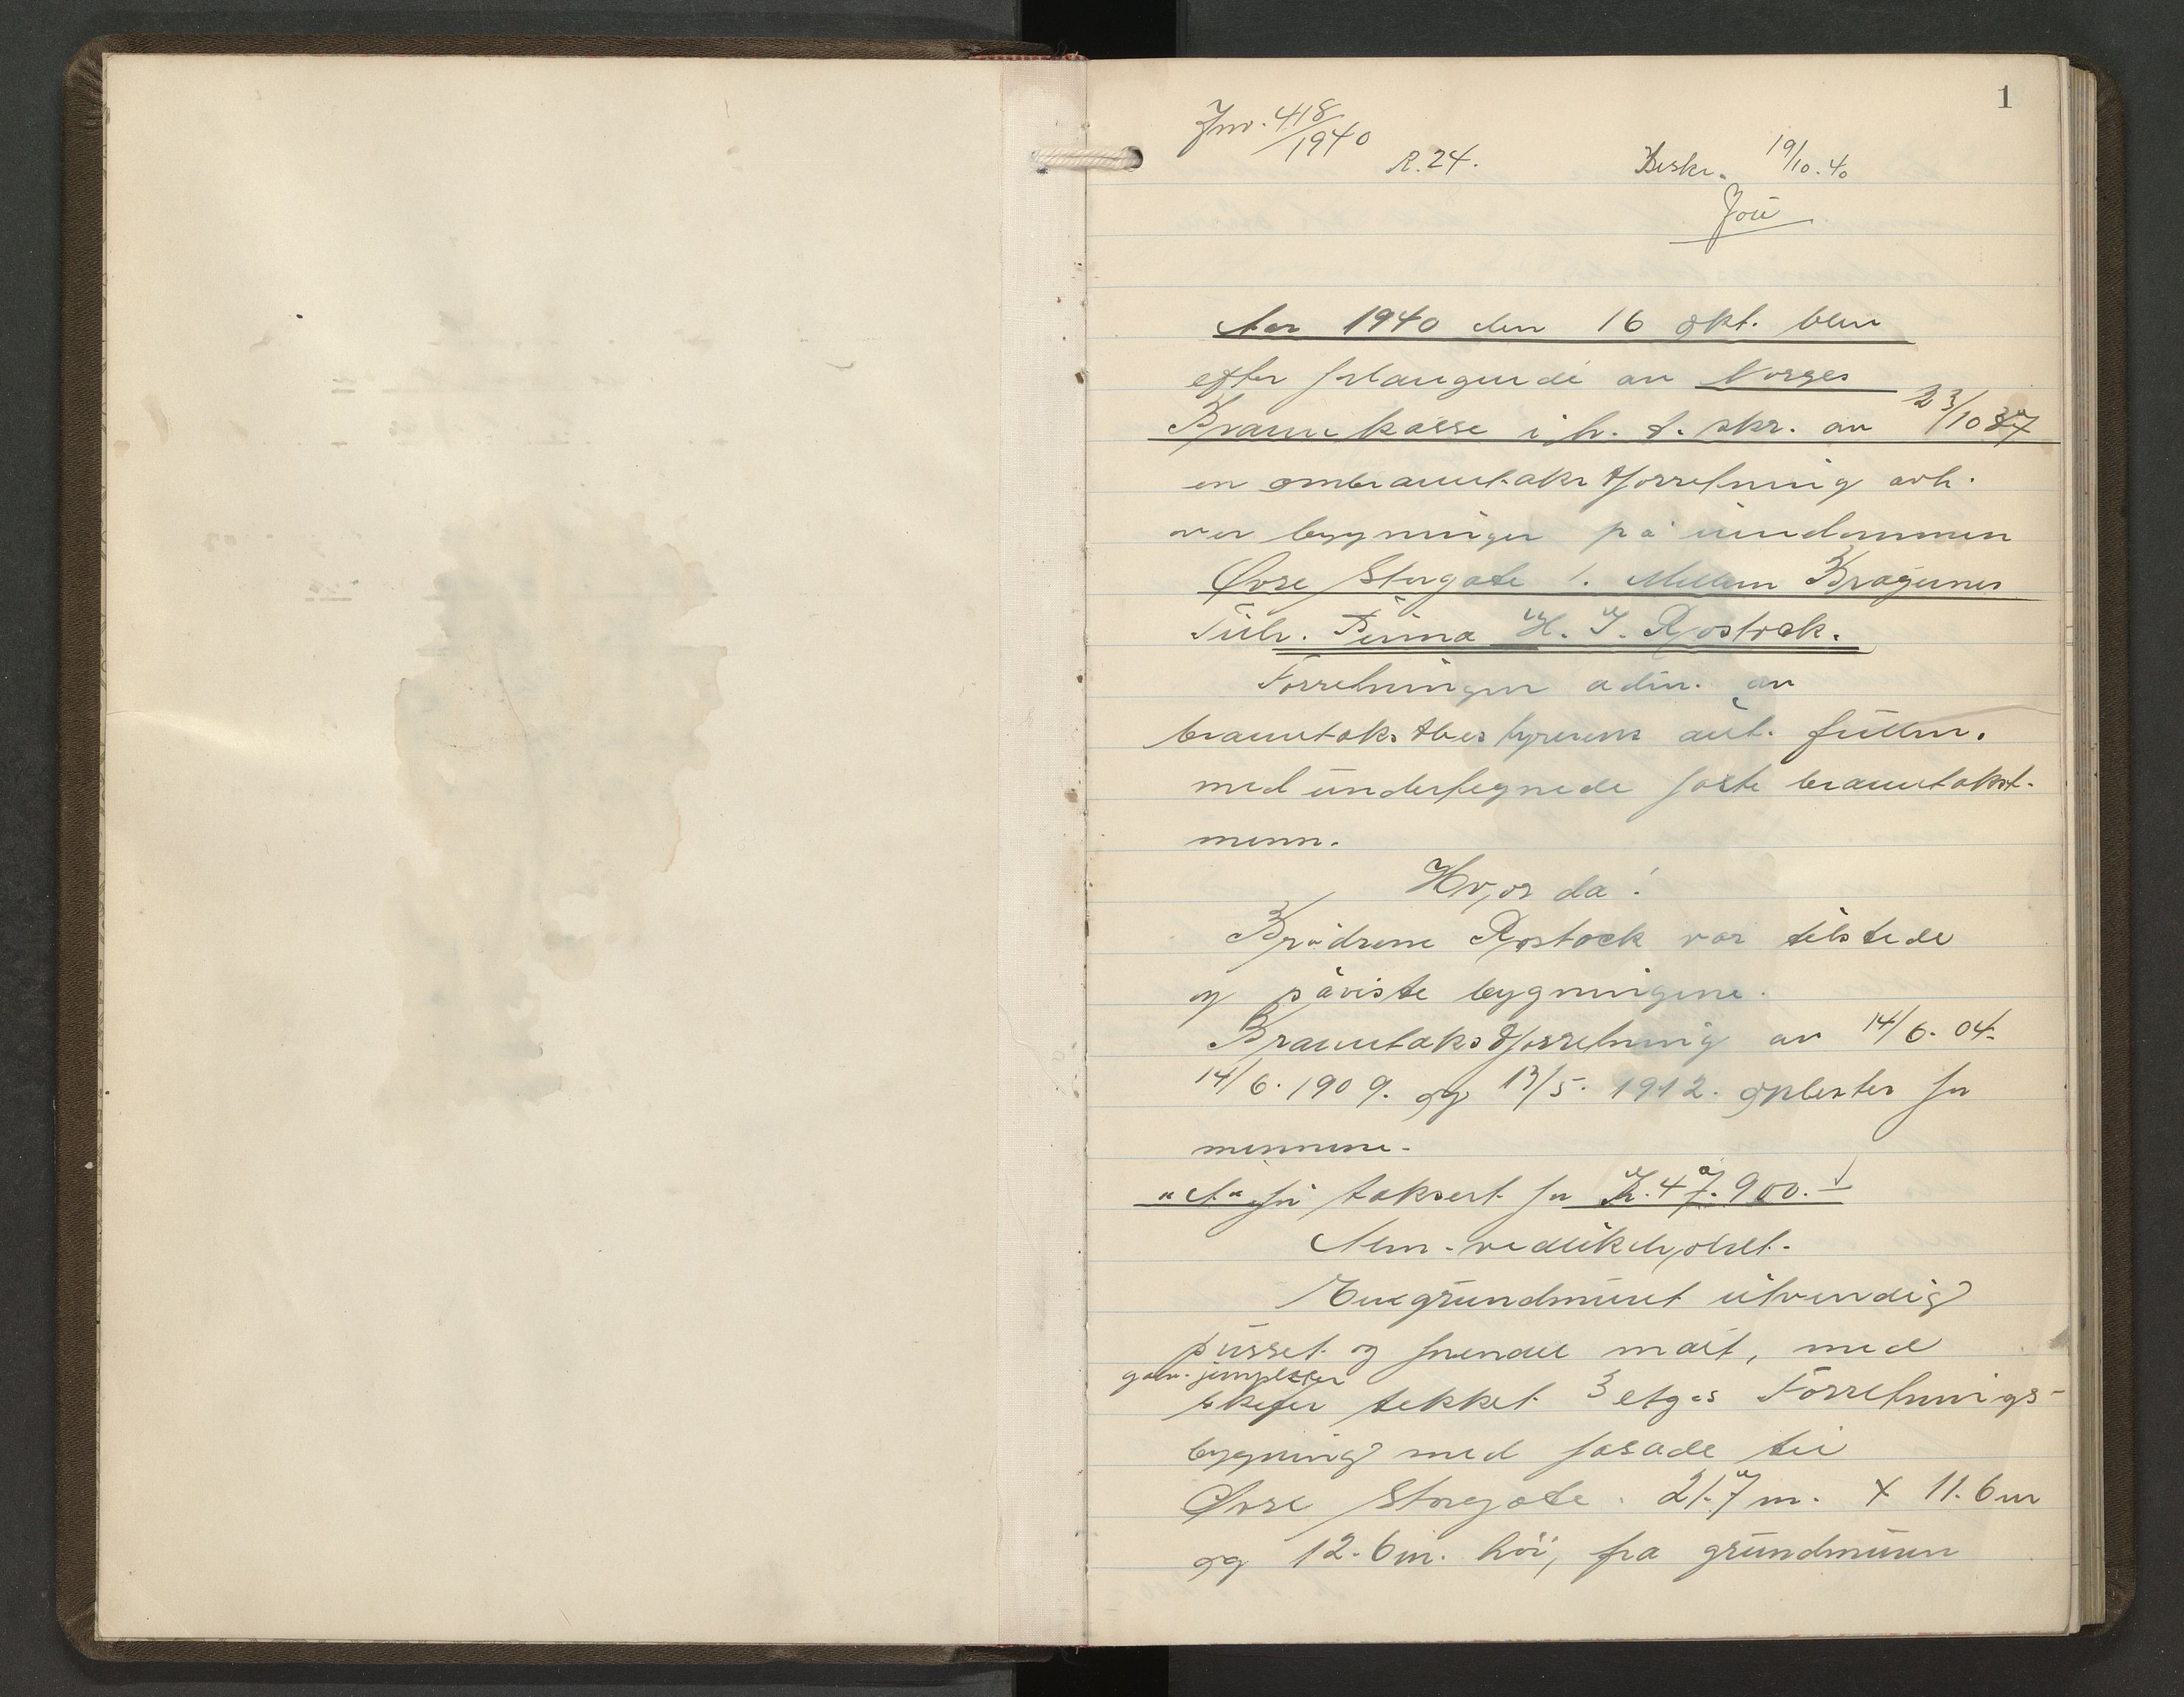 1
Jnr. 418/1940
R. 24. Beskr. 19/10.40
Aar 1940 den 16 okt. blev
efter forlangende av Norges
Brannkasse i h. t. skr. av 23/10 37
en ombranntakstforretning avh.
over bygninger på eiendommen
Øvre Storgate 1. Mellem Bragernes
Tilh. Firma H. J. Rostock.
Forretningen adm. av
branntakstbestyrerens aut. fullm.
med undertegnede faste branntakst-
menn.
Hvor da!
Brødrene Rostock var tilstede
og påviste bygningene.
Branntakstforretning av 14/6. 04.
14/6. 1909. og 13/5. 1912. oplestes for
mennene.
"A" før taksert for Kr. 47.900.-
Alm. vedlikeholdt.
En grundmuret utvendig
pusset og forendel malt, med
galv. jernplater
skifer tekket 3 etg.s Forretnings-
bygning med fasade til
Øvre Storgate. 21.7 m. x 11.6 m
og 12.6 m. høi, fra grundmuren